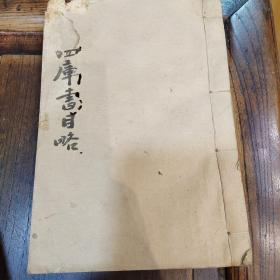 四庫書目略